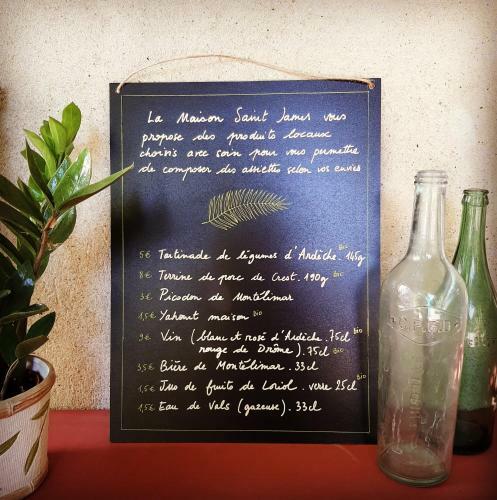 La Maison Saint James vous
propose des produits locaux
choisis avec soin pour vous permettre
de composer des assiettes selon vos envies
5€ Tartinade de légumes d'Ardèche. 145g Bio
8€ Terrine de porc de Crest. 190g Bio
3€ Picodon de Montélimar
1,5€ Yahourt maison Bio
9€ Vin (blanc et rosé d'Ardèche. 75cl Bio
rouge de Drôme). 75cl Bio
3,5€ Bière de Montélimar. 33cl
1,5€ Jus de fruits de Loriol. verre 25cl Bio
1,5€ Eau de Vals (gazeuse). 33cl